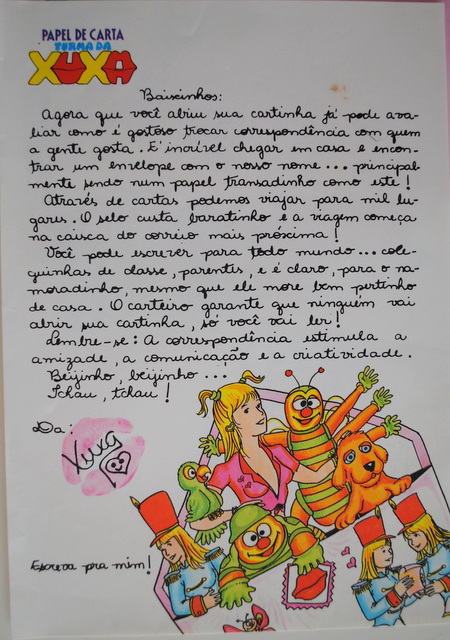 PAPEL DE CARTA
TURMA DA
XUXA
Baixinhos:
Agora que você abriu sua cartinha já pode ava-
liar como é gostoso trocar correspondência com quem
a gente gosta. É incrível chegar em casa e encon-
trar um envelope com o nosso nome... principal-
mente sendo num papel transadinho como este!
Através de cartas podemos viajar para mil lu-
gares. O selo custa baratinho e a viagem começa
na caixa do correio mais próxima!
Você pode escrever para todo mundo... cole-
guinhas de classe, parentes, e é claro, para o na-
moradinho, mesmo que ele more bem pertinho
de casa. O carteiro garante que ninguém vai
abrir sua cartinha, só você vai ler!
Lembre-se: A correspondência estimula a
amizade, a comunicação e a criatividade.
Beijinho, beijinho...
Tchau, tchau!
Da:
Xuxa
Escreva pra mim!